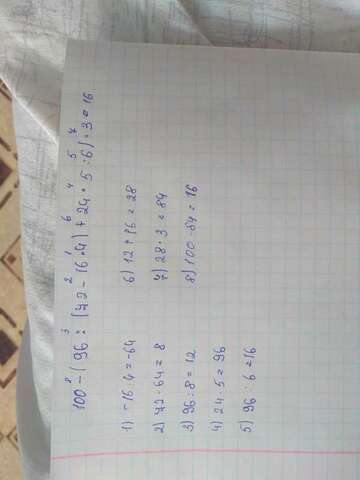 100 - (96 : (72 - 16 · 4) + 24 · 5 : 6) · 3 = 16
1) -16 · 4 = -64
2) 72 - 64 = 8
3) 96 : 8 = 12
4) 24 · 5 = 96
5) 96 : 6 = 16
6) 12 + 16 = 28
7) 28 · 3 = 84
8) 100 - 84 = 16